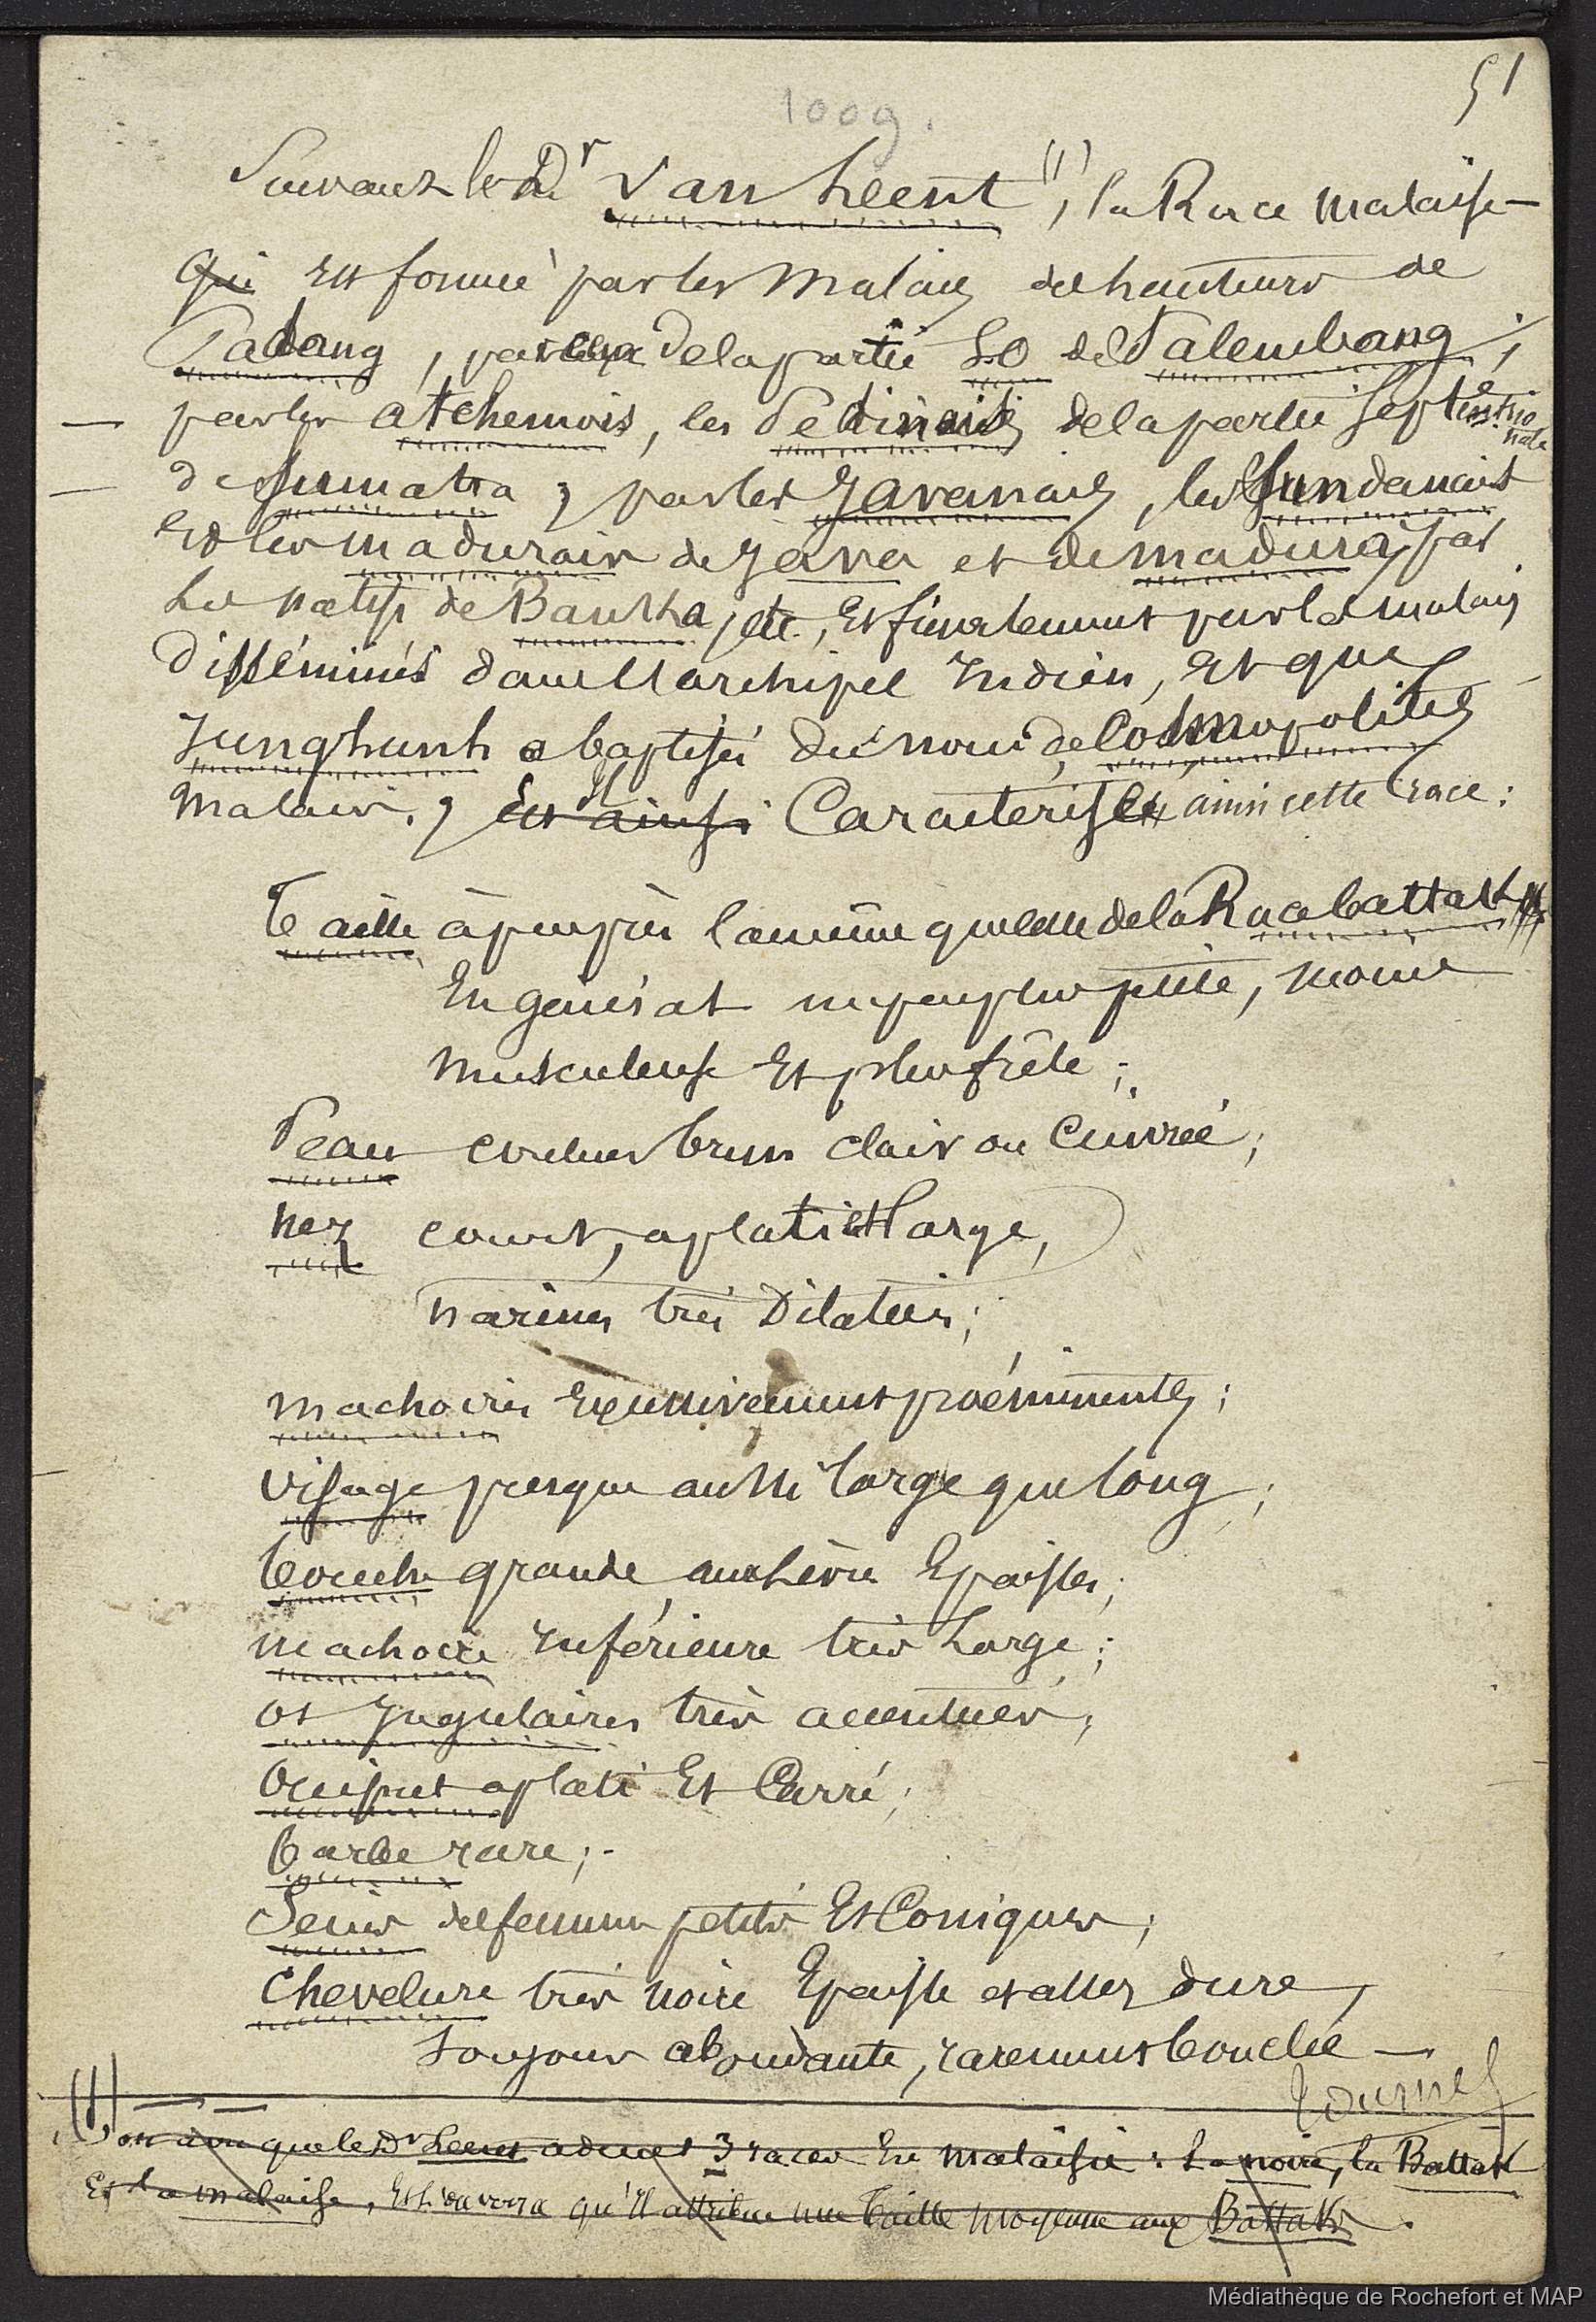 51
1009.
Suivant le Dr Van Leent (1), la Race malaise
qui est formée par les malais des hauteurs de
Padang, par ceux de la partie S-O de Palembang,
par les atchenois, les Pedirais de la partie septentrionale
de Sumatra, par les Javanais, les Sundanais
et les madurais de Java et de madura, par
les natifs de Banka, etc., Et finalement par les malais
disséminés dans l'archipel Indien, et que
Junghunh a baptisés du nom de Cosmopolites
malais, Est ainsi Il Caractérise ainsi cette race:
Taille à peu près la même que celle de la Race battak
En général un peu plus petite, moins
musculeuse Et plus frêle;
Peau couleur brun clair ou Cuivrée;
nez court, aplati et large,
narines très Dilatées;
machoires Excessivement proéminentes;
visage presque aussi large que long;
bouche grande, aux Lèvres Epaisses;
machoire Inférieure très Large;
os Jugulaires très accentués,
Occiput aplati Et Carré;
barbe rare;
Seins des femmes petits Et Coniques;
Chevelure très noire Epaisse et assez dure,
toujours abondante, rarement bouclée —
Tournez
(1) on a vu que le Dr Leent admet 3 races En malaisie: La noire, la Battak
Et la malaise, Et l'on verra qu'Il attribue une taille moyenne aux Battaks.
Médiathèque de Rochefort et MAP